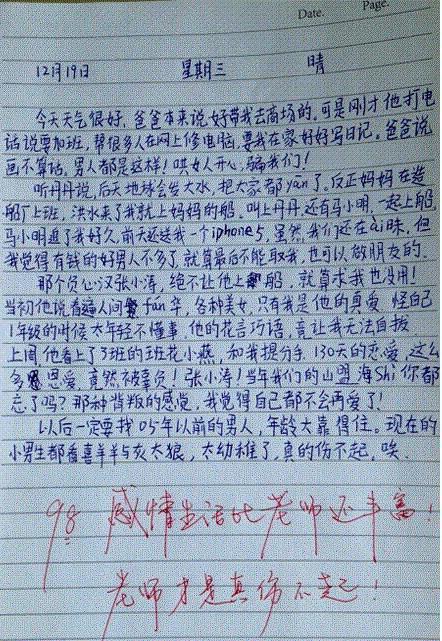 Date. Page.
12月19日 星期三 晴
今天天气很好,爸爸本来说好带我去商场的,可是刚才他打电
话说要加班,帮很多人在网上修电脑,要我在家好好写日记。爸爸说
画不算话,男人都是这样!哄女人开心,骗我们!
听丹丹说,后天地球会发大水,把大家都yān了。反正妈妈在造
船厂上班,洪水来了我就上妈妈的船。叫上丹丹,还有马小明,一起上船。
马小明追了我好久,前天还送我一个iphone5,虽然我们还在ài昧,但
我觉得有钱的好男人不多了,就算最后不能取我,也可以做朋友的。
那个负心汉张小涛,绝不让他上船,就算求我也没用!
当初他说看遍人间fán华,各种美女,只有我是他的真爱,怪自己
1年级的时候太年轻不懂事,他的花言巧语,竟让我无法自拔
上周他看上了3班的班花小燕,和我提分手,130天的恋爱,这么
多恩爱,竟然不被辜负!张小涛!当年我们的山盟海Shi你都
忘了吗?那种背叛的感觉,我觉得自己都不会再爱了!
以后一定要找05年以前的男人,年龄大靠得住。现在的
小男生都看喜羊羊与灰太狼,太幼稚了,真的伤不起,唉.
98 感情生活比老师还丰富!
老师才是真伤不起!